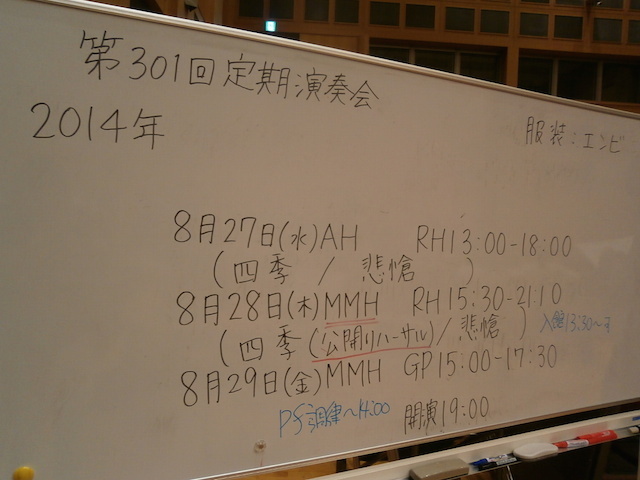 第301回定期演奏会
2014年
服装:エンビ
8月27日(水)AH RH13:00-18:00
(四季 / 悲愴 )
8月28日(木)MMH RH15:30-21:10
(四季(公開リハーサル)/悲愴 ) 入館13:30~です
8月29日(金)MMH GP15:00-17:30
Pf調律~14:00 開演19:00